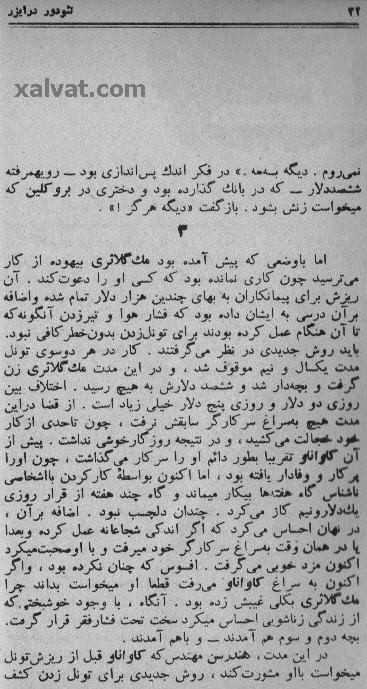 ۲۲ تئودور درایزر
xalvat.com
نمی‌روم . دیگه بسه‌مه .» در فکر اندك پس‌اندازی بود ــ رویهمرفته
ششصددلار ــ که در بانك گذارده بود و دختری در بروکلین که
میخواست زنش بشود . بازگفت «دیگه هرگز !» .
۳
اما باوضعی که پیش آمده بود مك‌گلاثری بیهوده از کار
می‌ترسید چون کاری نمانده بود که کسی او را دعوت‌کند . آن
ریزش برای پیمانکاران به بهای چندین هزار دلار تمام شده واضافه
برآن درسی به ایشان داده بود که فشار هوا و تیرزدن آنگونه‌که
تا آن هنگام عمل کرده بودند برای تونل‌زدن بدون‌خطرکافی نبود.
باید روش جدیدی در نظر می‌گرفتند . کار در هر دوسوی تونل
مدت یکسال و نیم موقوف شد ، و در این مدت مك‌گلاثری زن
گرفت و بچه‌دار شد و ششصد دلارش به هیچ رسید . اختلاف بین
روزی دو دلار و روزی پنج دلار خیلی زیاد است . از قضا دراین
مدت هیچ به‌سراغ سرکارگر سابقش نرفت ، چون تاحدی ازکار
خود خجالت می‌کشید ، و در نتیجه روزگارخوشی نداشت . پیش از
آن کاواناو تقریبا بطور دائم او را سرکار می‌گذاشت ، چون اورا
پرکار و وفادار یافته بود ، اما اکنون بواسطهٔ کارکردن بااشخاصی
ناشناس گاه هفته‌ها بیکار میماند و گاه چند هفته از قرار روزی
یك‌دلارونیم کار می‌کرد . چندان دلچسب نبود . اضافه برآن ،
در نهان احساس می‌کرد که اگر اندکی شجاعانه عمل کرده وبعدا
یا در همان وقت به‌سراغ سرکارگر خود میرفت و با اوصحبت‌میکرد
اکنون مزد خوبی می‌گرفت . افسوس که چنان نکرده بود ، واگر
اکنون به سراغ کاواناو می‌رفت قطعا او میخواست بداند چرا
مك‌گلاثری بکلی غیبش زده بود . آنگاه ، با وجود خوشبختی‌که
از زندگی زناشویی احساس میکرد سخت تحت فشارفقر قرار گرفت.
بچه دوم و سوم هم آمدند ــ و باهم آمدند .
در این مدت، هندرسن مهندس‌که کاواناو قبل از ریزش‌تونل
میخواست بااو مشورت‌کند ، روش جدیدی برای تونل زدن کشف